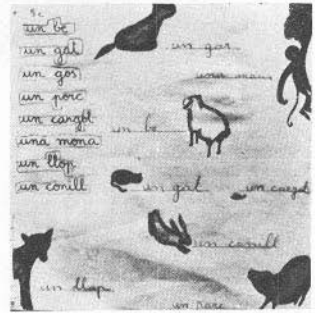 un be
un gat
un gos
un porc
un cargol
una mona
un llop
un conill
un gos
una mona
un be
un gat
un cargol
un conill
un llop
un porc